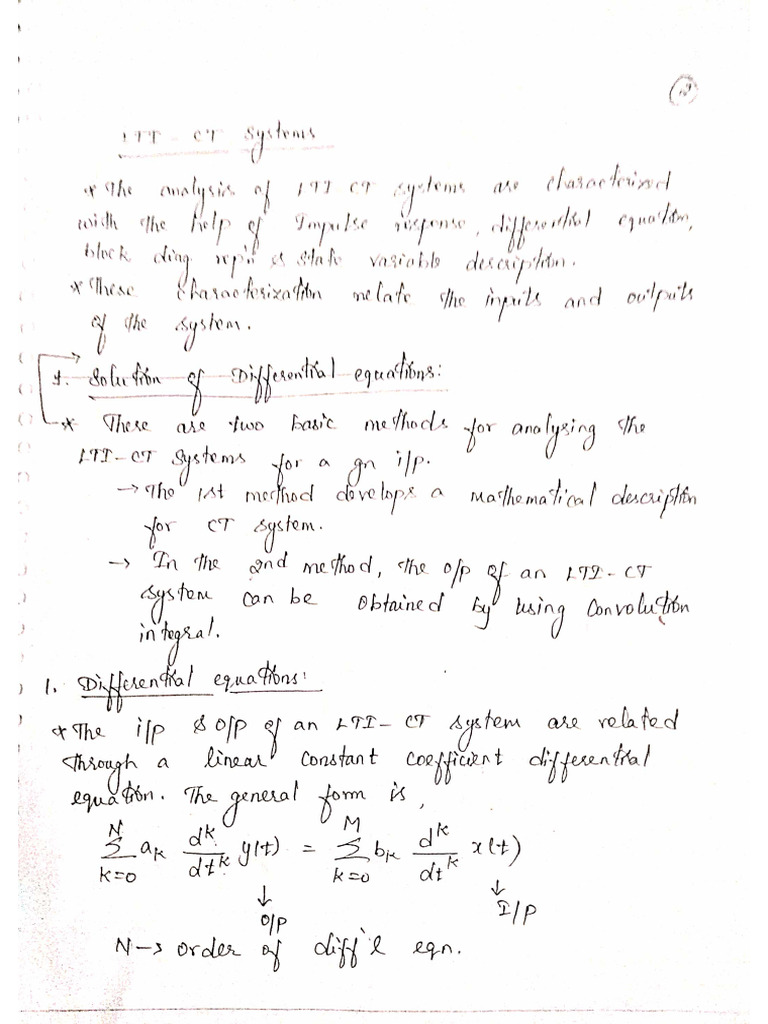 LTI-CT Systems
* The analysis of LTI-CT systems are characterized
with the help of Impulse response, differential equation,
block diag rep'n & state variable description.
* These characterization relate the inputs and outputs
of the system.
1. Solution of Differential equations:
* There are two basic methods for analysing the
LTI-CT Systems for a gn i/p.
→ The 1st method develops a mathematical description
for CT system.
→ In the 2nd method, the o/p of an LTI-CT
system can be obtained by using Convolution
integral.
1. Differential equations:
* The i/p & o/p of an LTI-CT system are related
through a linear constant coefficient differential
equation. The general form is,
N Σ k=0 aₖ dᵏ/dtᵏ y(t) = M Σ k=0 bₖ dᵏ/dtᵏ x(t)
↓ O/P ↓ I/P
N → order of diff'l eqn.